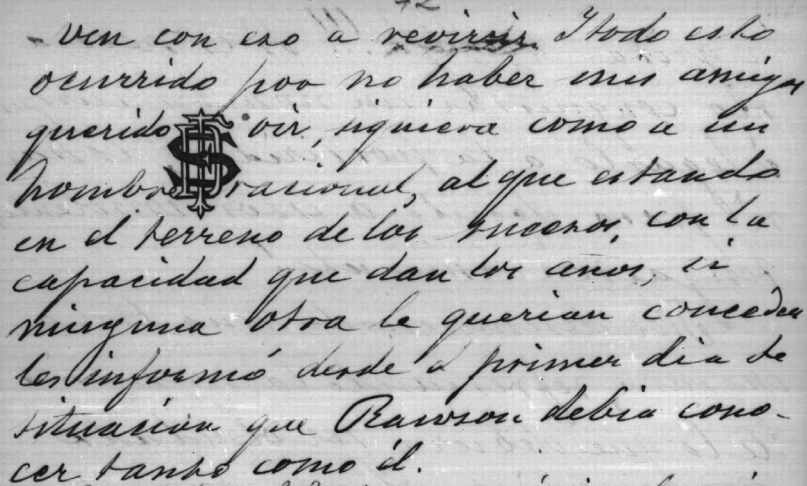 ven con eso a revivir. I todo esto
ocurrido por no haber mis amigos
querido oir, siquiera como a un
hombre racional, al que estando
en el terreno de los sucesos, con la
capacidad que dan los años, si
ninguna otra le querian conceder
les informó desde el primer dia de
situacion que Rawson debia cono-
cer tanto como él.